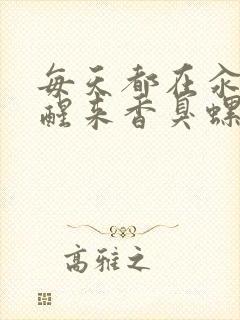 每天都在汆
醒来香臭螺
高雅之